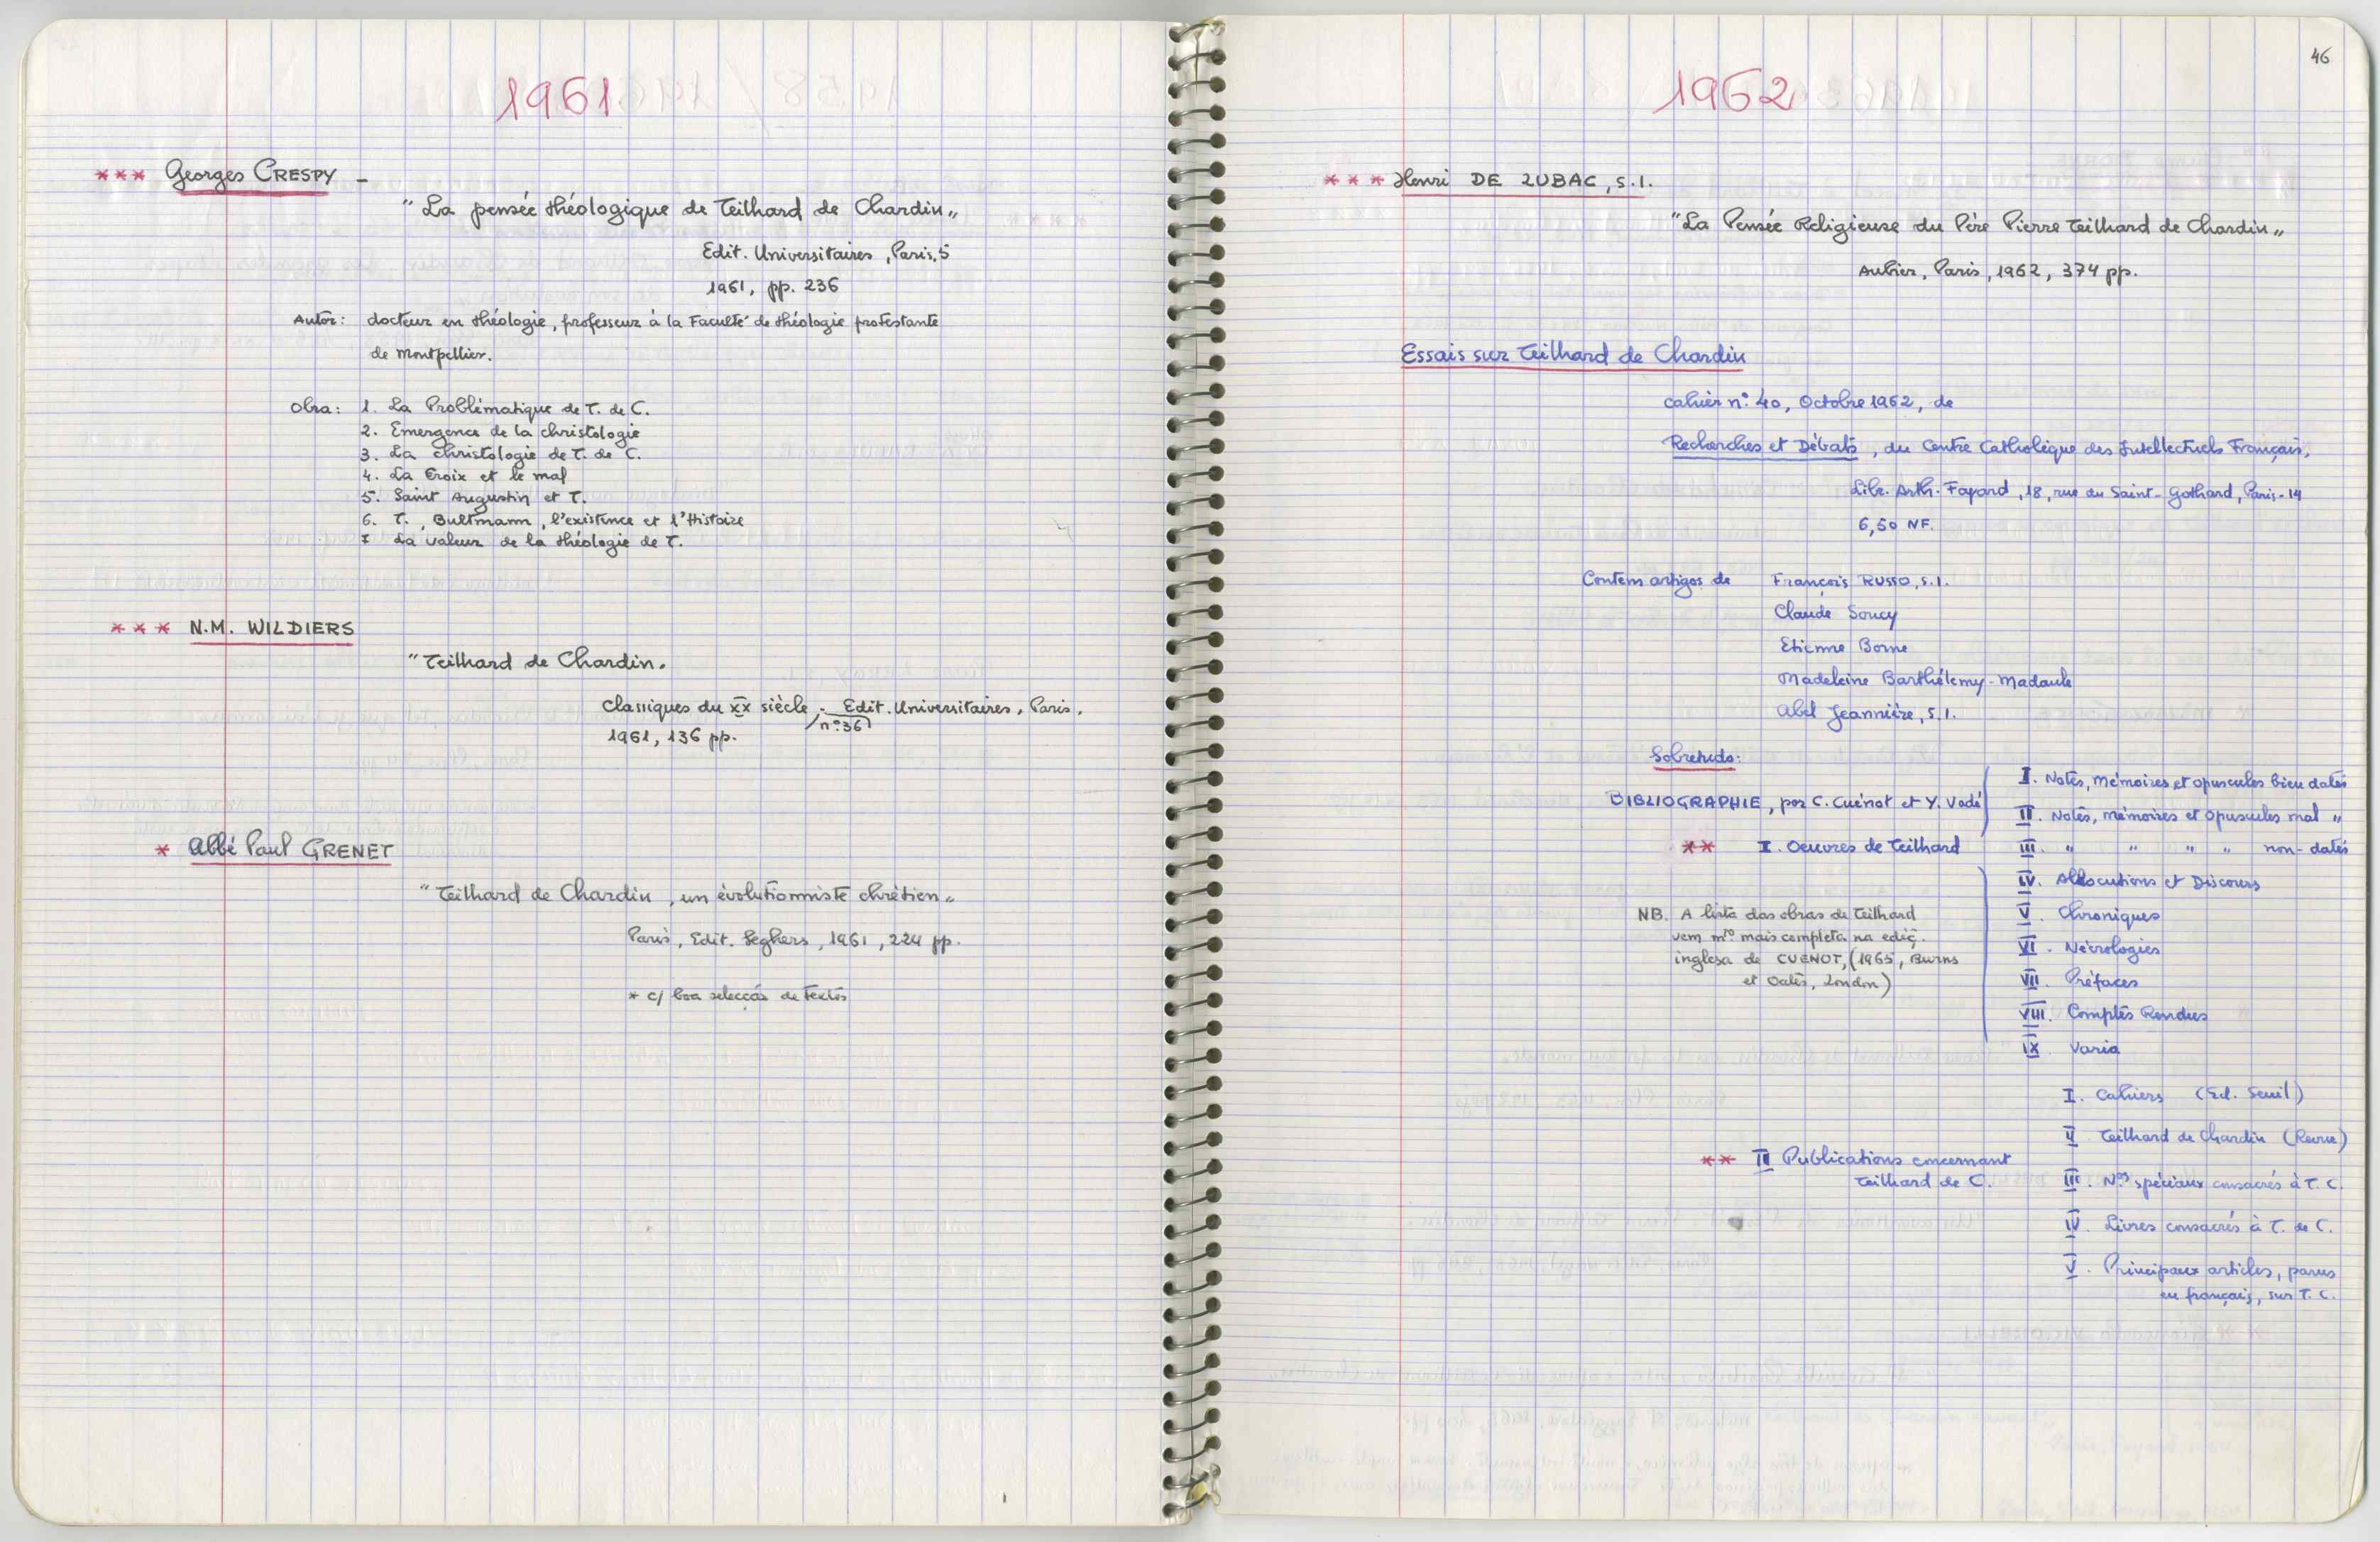 1961
*** Georges CRESPY -
"La pensée théologique de Teilhard de Chardin"
Edit. Universitaires, Paris, 5
1961, pp. 236
Autor: docteur en théologie, professeur à la Faculté de théologie protestante
de Montpellier.
Obra: 1. La Problématique de T. de C.
2. Emergence de la christologie
3. La christologie de T. de C.
4. La Croix et le mal
5. Saint Augustin et T.
6. T., Bultmann, l'existence et l'Histoire
7 La valeur de la théologie de T.
*** N.M. WILDIERS
"Teilhard de Chardin.
Classiques du XX siècle, nº 36 - Edit. Universitaires, Paris.
1961, 136 pp.
* Abbé Paul GRENET
"Teilhard de Chardin, un évolutionniste chrétien"
Paris, Edit. Seghers, 1961, 224 pp.
* c/ boa selecção de textos
46
1962
*** Henri DE LUBAC, S.I.
"La Pensée Religieuse du Père Pierre Teilhard de Chardin"
Aubier, Paris, 1962, 374 pp.
Essais sur Teilhard de Chardin
Cahier nº 40, Octobre 1962, de
Recherches et Débats, du Centre Catholique des Intellectuels Français,
Libr. Arth. Fayard, 18, rue du Saint-Gothard, Paris-14
6,50 NF.
Contem artigos de François RUSSO, S.I.
Claude Soucy
Etienne Borne
Madeleine Barthélemy-Madaule
Abel Jeannière, S.I.
Sobretudo:
BIBLIOGRAPHIE, por C. Cuénot et Y. Vadé
** I. Oeuvres de Teilhard
I. Notes, Mémoires et opuscules bien datés
II. Notes, mémoires et opuscules mal "
III. " " " " non-datés
IV. Allocutions et Discours
V. Chroniques
VI. Nécrologies
VII. Préfaces
VIII. Comptes Rendus
IX. Varia
NB. A lista das obras de Teilhard
vem mto mais completa na ediç.
inglesa de CUENOT, (1965, Burns
et Oates, London)
** II Publications concernant
Teilhard de C.
I. Cahiers (Ed. Seuil)
II. Teilhard de Chardin (Revue)
III. Nos spéciaux consacrés à T. C.
IV. Livres consacrés à T. de C.
V. Principaux articles, parus
en français, sur T. C.